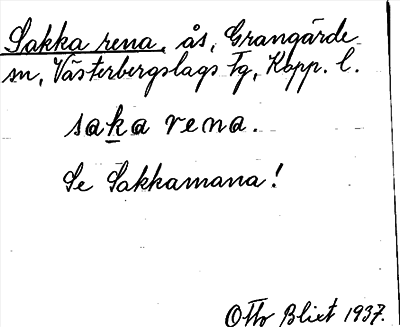 Sakka rena, ås, Grangärde
sn, Västerbergslags fg, Kopp. l.
saka rena.
Se Sakkamana!
Otto Blixt 1937.